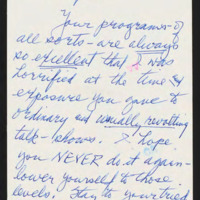 Your programs - of
all sorts - are always
so excellent that I was
horrified at the time &
exposure you gave to
ordinary and usually revolting
talk-shows. I hope
you NEVER do it again -
lower yourself to those
levels. Stay to your tried